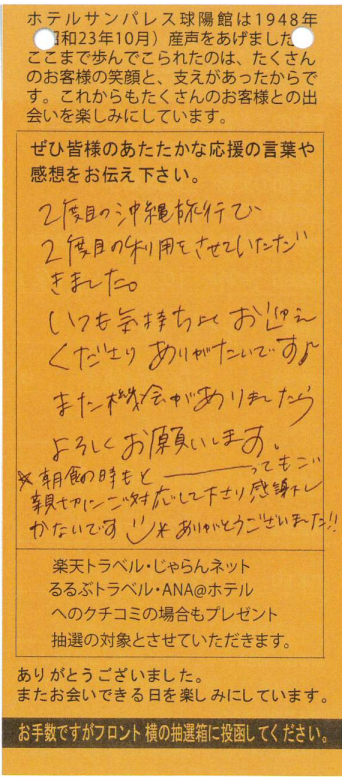 ホテルサンパレス球陽館は1948年
昭和23年10月）産声をあげました
ここまで歩んでこられたのは、たくさん
のお客様の笑顔と、支えがあったからで
す。これからもたくさんのお客様との出
会いを楽しみにしています。
ぜひ皆様のあたたかな応援の言葉や
感想をお伝え下さい。
2度目の沖縄旅行で、
2度目の利用をさせていただ
きました。
いつも気持ちよくお迎え
くださり ありがたいです♪
また機会がありましたら
よろしくお願いします。
*朝食の時もと――ってもご
親切にご対応して下さり感謝しか
ないです ありがとうございました!!
楽天トラベル・じゃらんネット
るるぶトラベル・ANA@ホテル
へのクチコミの場合もプレゼント
抽選の対象とさせていただきます。
ありがとうございました。
またお会いできる日を楽しみにしています。
お手数ですがフロント横の抽選箱に投函してください。